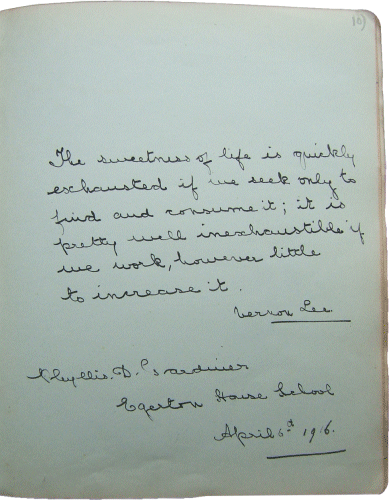 10)
The sweetness of life is quickly
exhausted if we seek only to
find and consume it; it is
pretty well inexhaustible if
we work, however little
to increase it.
Vernon Lee
Phyllis. D. Gardiner
Egerton House School
April 6st 1916.